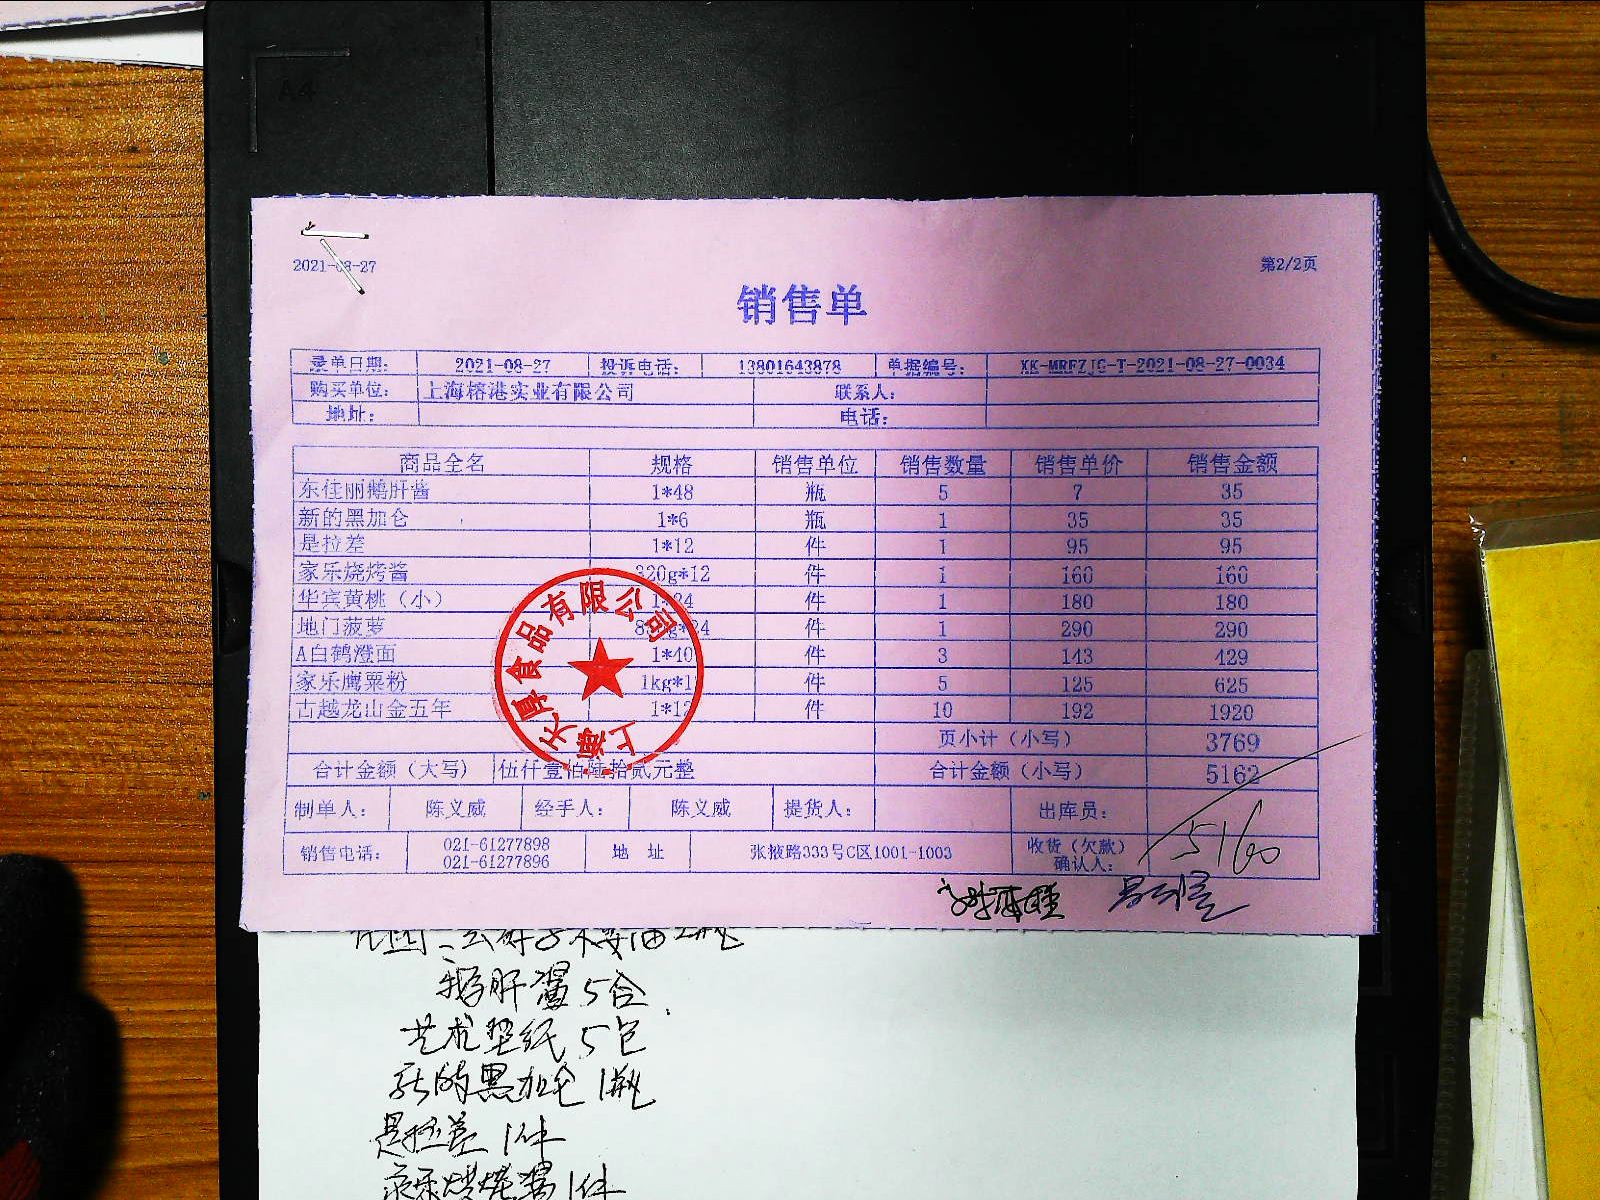 A4
2021-08-27
第2/2页
销售单
录单日期： 2021-08-27 投诉电话： 13801643878 单据编号： XK-MRFZJG-T-2021-08-27-0034
购买单位： 上海榕港实业有限公司 联系人：
地址： 电话：
商品全名 规格 销售单位 销售数量 销售单价 销售金额
东佳丽鹅肝酱 1*48 瓶 5 7 35
新的黑加仑 1*6 瓶 1 35 35
是拉差 1*12 件 1 95 95
家乐烧烤酱 320g*12 件 1 160 160
华宾黄桃（小） 1*24 件 1 180 180
地门菠萝 件 1 290 290
A白鹤澄面 1*40 件 3 143 429
家乐鹰粟粉 1kg*1 件 5 125 625
古越龙山金五年 1*12 件 10 192 1920
页小计（小写） 3769
合计金额（大写） 伍仟壹佰陆拾贰元整 合计金额（小写） 5162
制单人： 陈义威 经手人： 陈义威 提货人： 出库员：
销售电话： 021-61277898 021-61277896 地 址 张掖路333号C区1001-1003 收货（欠款）确认人：
5160
上海天厚食品有限公司
鹅肝酱 5合
艺术垫纸 5包
新的黑加仑 1瓶
是拉差 1件
家乐烧烤酱 1件